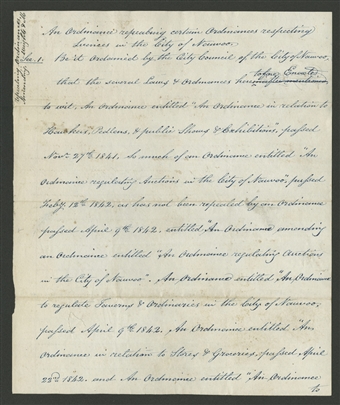 An Ordinance repealing certain Ordinances respecting
licences in the City of Nauvoo.
Sec. 1. Be it Ordained by the City Council of the City of Nauvoo,
that the several Laws & Ordinances
to wit. An Ordinance entitled "An Ordinance in relation to
Hawkers, Pedlers, & public Shows & Exhibitions", passed
Novr. 27th 1841. So much of an Ordinance entitled "An
Ordinance regulating Auctions in the City of Nauvoo", passed
Feby. 12th 1842. as has not been repealed by an Ordinance
passed April 9th 1842. entitled "An Ordinance amending
an Ordinance entitled "An Ordinance regulating Auctions
in the City of Nauvoo". An Ordinance entitled "An Ordinance
to regulate Taverns & Ordinaries in the City of Nauvoo,
passed April 9th 1842. An Ordinance entitled "An
Ordinance in relation to Stores & Groceries, passed April
22nd 1842. and An Ordinance entitled "An Ordinance
to